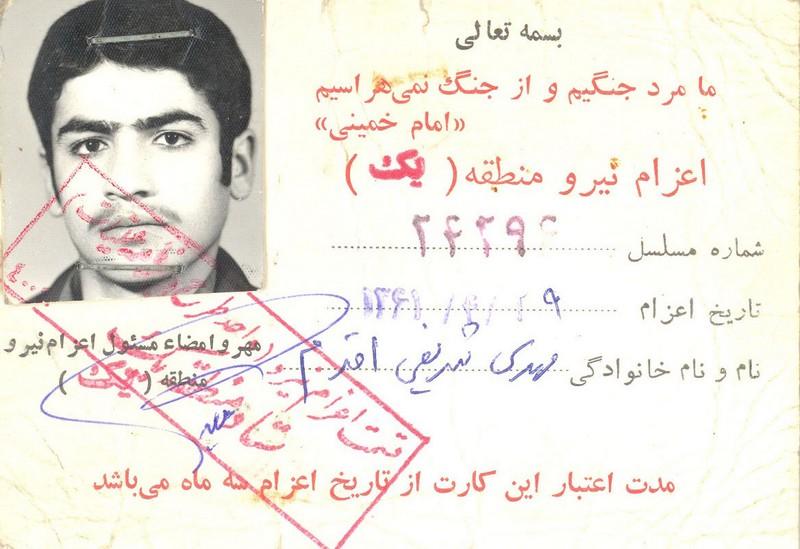 بسمه تعالی
ما مرد جنگیم و از جنگ نمی‌هراسیم
«امام خمینی»
اعزام نیرو منطقه ( یک )
شماره مسلسل
تاریخ اعزام ۱۳۶۱/۴/۱۹
نام و نام خانوادگی مهدی شریفی اقدم
مهر و امضاء مسئول اعزام نیرو
منطقه ( یک )
مدت اعتبار این کارت از تاریخ اعزام سه ماه می‌باشد